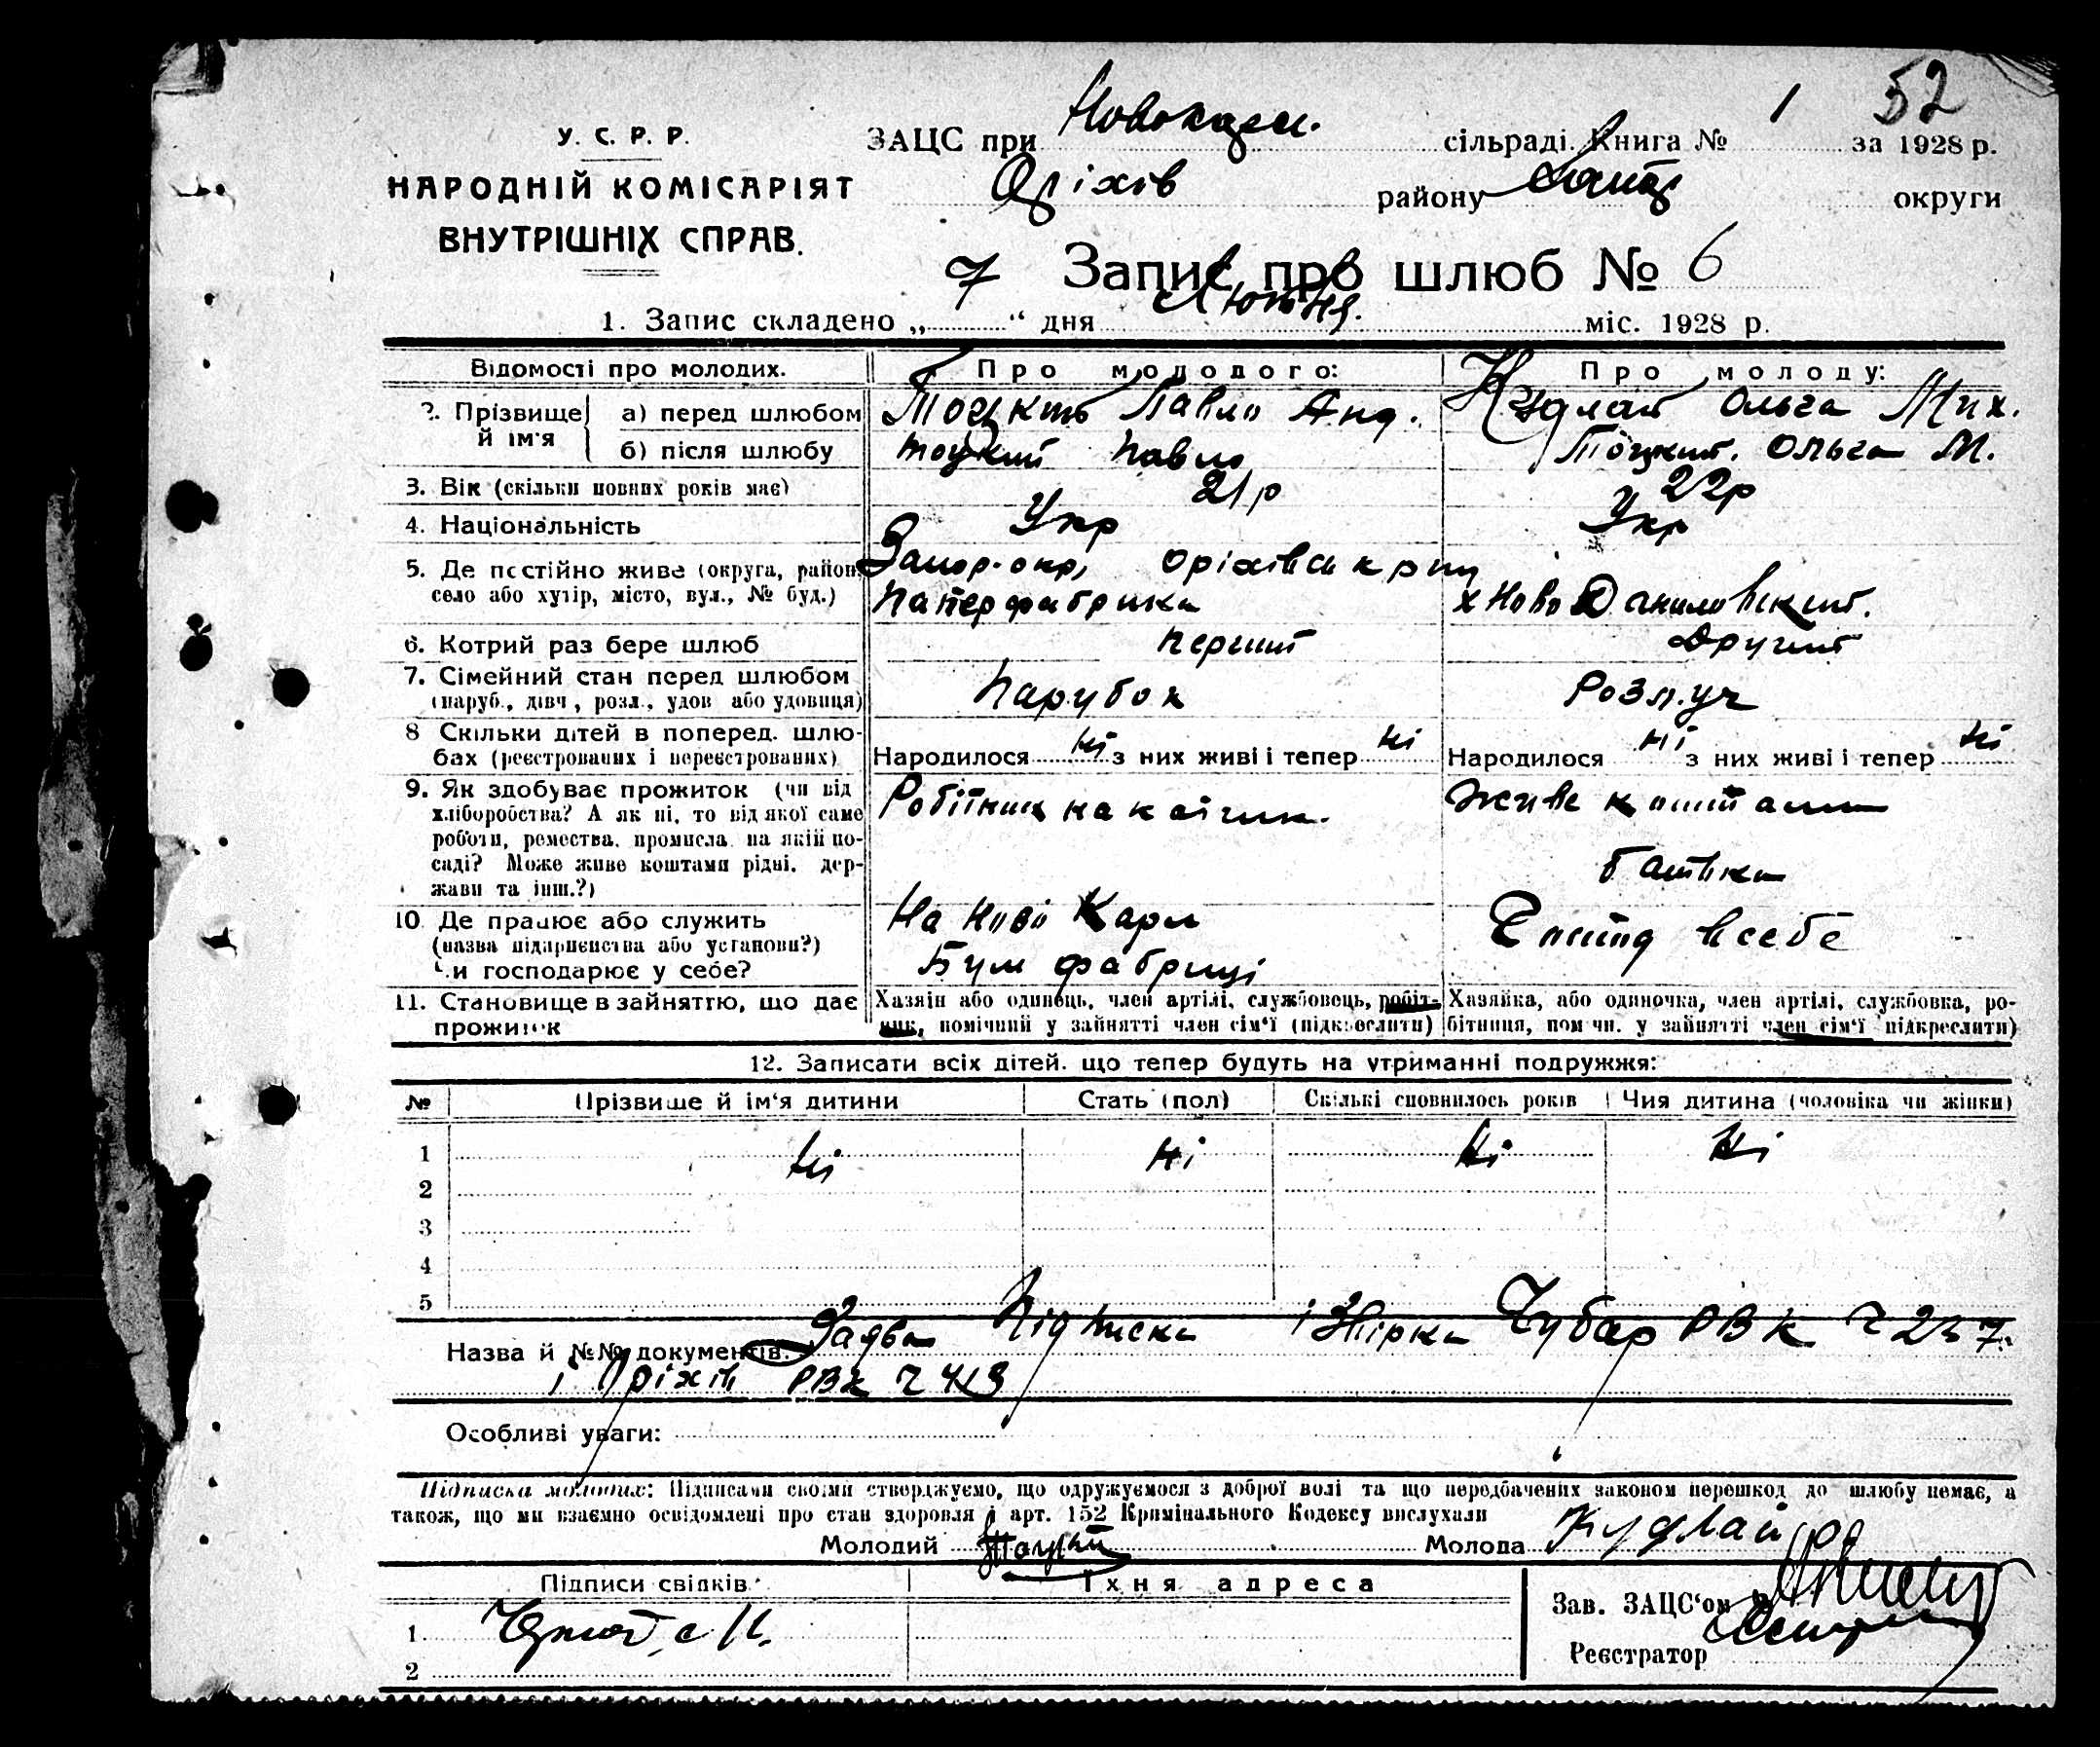 52
У. С. Р. Р.
НАРОДНІЙ КОМІСАРІЯТ
ВНУТРІШНІХ СПРАВ.
ЗАЦС при Новокарл. сільраді. Книга № 1 за 1928 р.
Оріхів району Запор округи
Запис про шлюб № 6
1. Запис складено „ 7 “ дня Лютня міс. 1928 р.
Відомості про молодих. Про молодого: Про молоду:
2. Прізвище й ім'я а) перед шлюбом Тоцький Павло Анд. Ольга Мих.
б) після шлюбу Тоцкий Павло Тоцкий. Ольга М.
3. Вік (скільки повних років має) 21 р 22 р
4. Національність Укр Укр
5. Де постійно живе (округа, район, село або хутір, місто, вул., № буд.) Запор. окр, Оріхівськ р
Паперфабрика х Ново Даниловский.
6. Котрий раз бере шлюб перший Другий
7. Сімейний стан перед шлюбом (паруб., дівч, розл., удов або удовиця) Парубок Розлуч
8 Скільки дітей в поперед. шлюбах (реєстрованих і нереєстрованих) Народилося Ні з них живі і тепер Ні Народилося Ні з них живі і тепер Ні
9. Як здобуває прожиток (чи від хліборобства? А як ні, то від якої саме роботи, ремества, промисла на якій посаді? Може живе коштами рідні, держави та інш.?) Робітник Живе коштами
батька
10 Де працює або служить (назва підприємства або установи?) Чи господарює у себе? На Ново Карл
Бум фабриці
всебе
11. Становище в зайняттю, що дає прожиток Хазяїн або одинець, член артілі, службовець, робітник, помічний у зайнятті член сім'ї (підкреслити) Хазяйка, або одиночка, член артілі, службовка, робітниця, помічн. у зайнятті член сім'ї підкреслити)
12. Записати всіх дітей, що тепер будуть на утриманні подружжя:
№ Прізвище й ім'я дитини Стать (пол) Скількі сповнилось років Чия дитина (чоловіка чи жінки)
1 Ні Ні Ні Ні
2
3
4
5
Назва й №№ документів: Заява Підписка і Звірка Чубар РВК ч 237.
і Оріхів РВК ч 413
Особливі уваги:
Підписка молодих: Підписами своїми стверджуємо, що одружуємося з доброї волі та що передбачених законом перешкод до шлюбу немає, а
також, що ми взаємно освідомлені про стан здоровля і арт. 152 Кримінального Кодексу вислухали
Молодий Тоцкий Молода
Підписи свідків: Їхня адреса
1
2
Зав. ЗАЦС'ом
Реєстратор